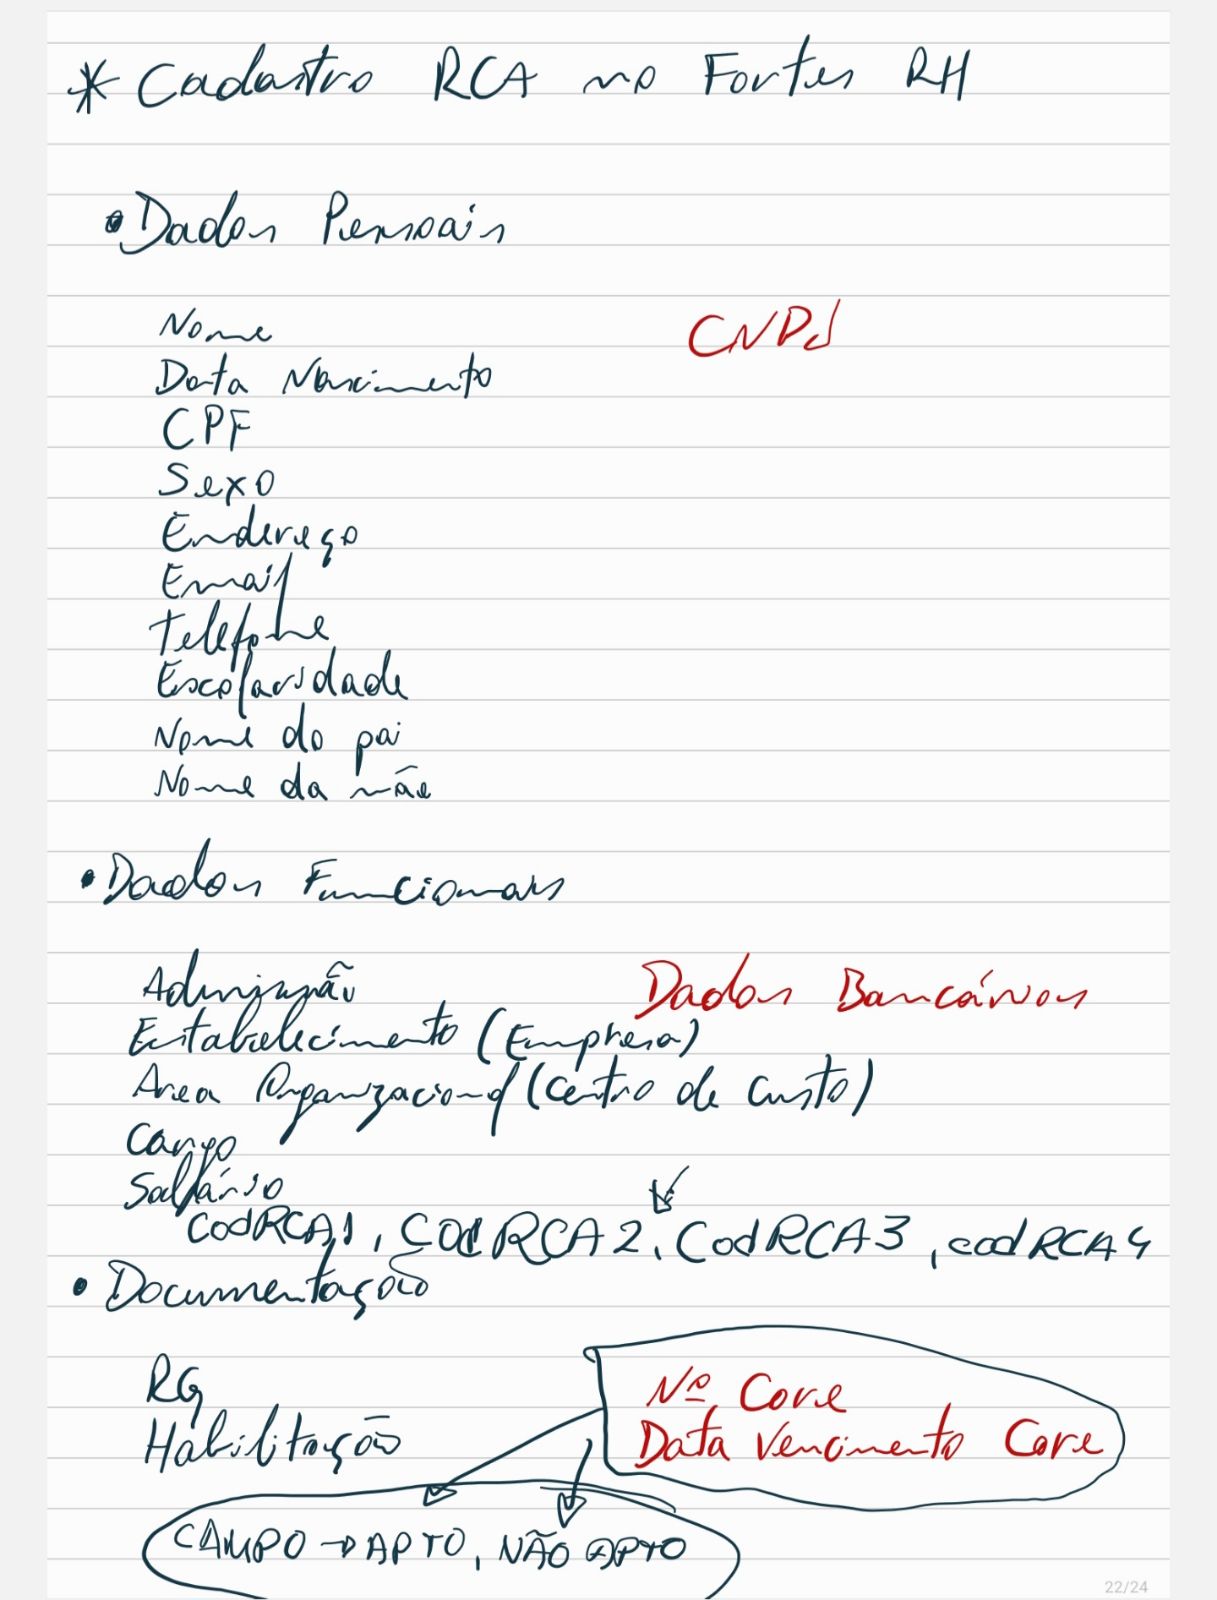 * Cadastro RCA no Fortes RH
• Dados Pessoais
Nome
CNPJ
Data Nascimento
CPF
Sexo
Endereço
Email
Telefone
Escolaridade
Nome do pai
Nome da mãe
• Dados Funcionais
Admissão
Dados Bancários
Estabelecimento (Empresa)
Area Organizacional (Centro de Custo)
Cargo
Salário
CodRCA1, CodRCA2, CodRCA3, codRCA4
• Documentação
RG
Nº Core
Habilitação
Data Vencimento Core
CAMPO → APTO, NÃO APTO
22/24